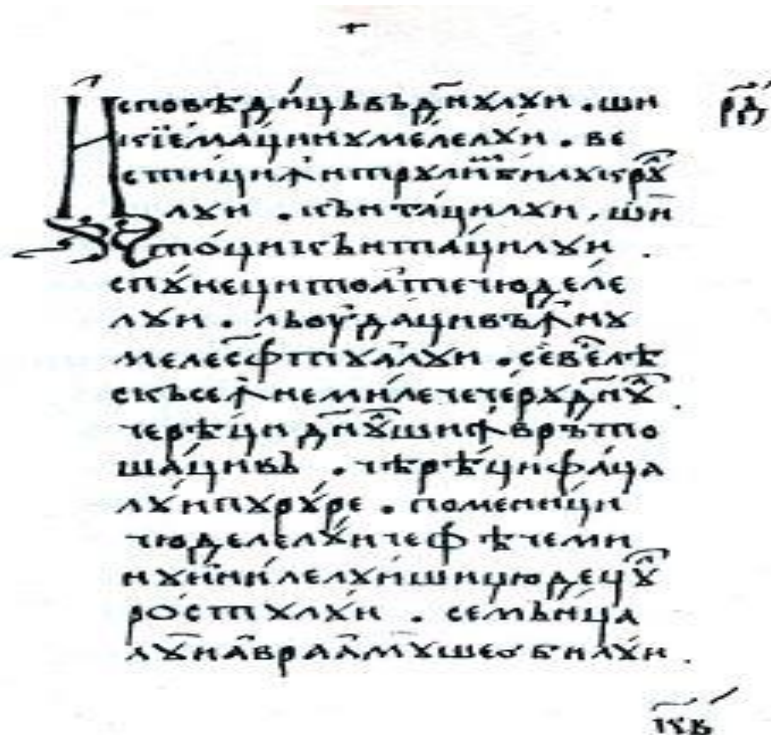 р҃д
Исповѣди́цьвъдн҃ꙋлꙋи . ши
кїема́цинꙋмелелꙋ́и . ве
сти́циꙟнтрꙋли́мбилꙋкрꙋ
лꙋи . кънта́цилꙋи . ши
то́цикънта́цилꙋи .
спꙋ́нецитоа́течюделе́
лꙋи . льоуда́цивъꙟнꙋ
мелесф҃тꙋлꙋи . севе́лѣ
скъсеꙟнеми́лечече́рꙋдн҃ꙋ .
черѣ́цидн҃ꙋшиꙟвръто
ша́цивъ . чѣрѣ́цифа́ца
лꙋ́ипꙋрꙋ́ре . помени́ци
чюделелꙋ́ичефѣчеми
нꙋни́лелꙋ́ишицюдецꙋ
ро́стꙋлꙋ́и . семъни́ца
лꙋ́иавраа́мꙋшеѻбилꙋ́и .